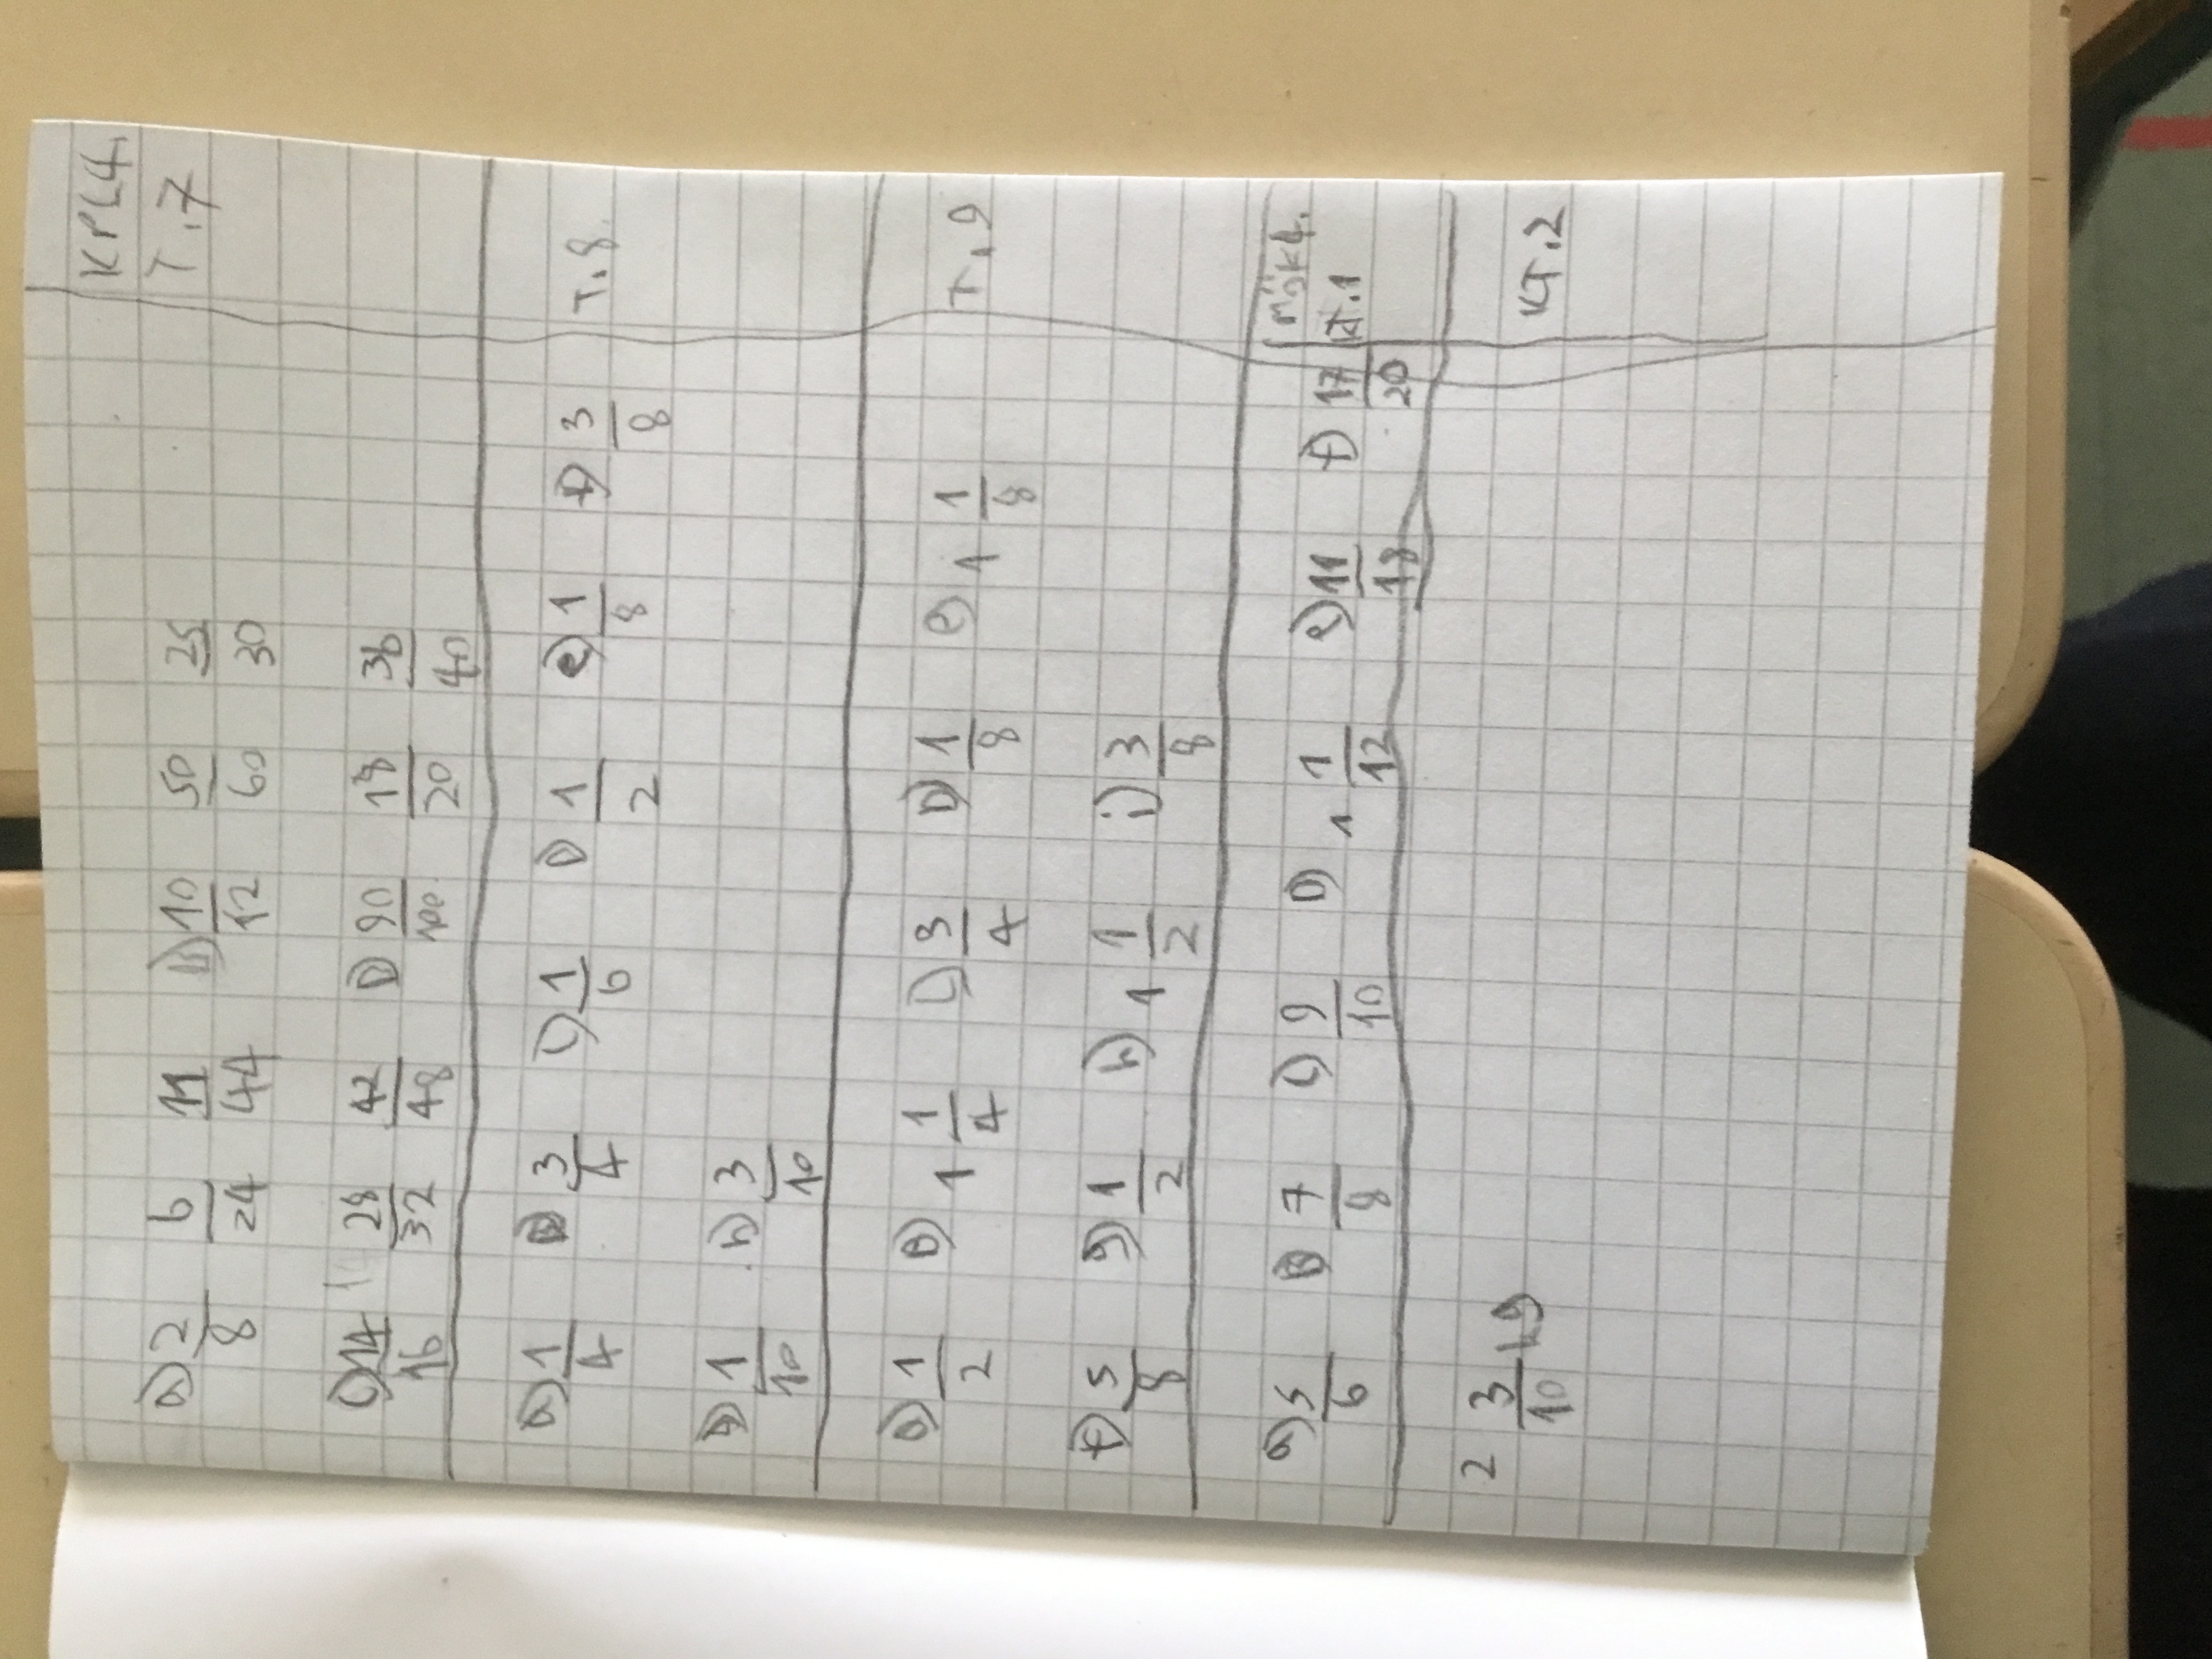 KPL4.
a) 2/8 6/24 11/44 B) 10/12 50/60 25/30 T.7
C) 14/16 28/32 42/48 D) 90/100 18/20 36/40
a) 1/4 B) 3/4 C) 1/6 D) 1/2 e) 1/8 f) 3/8 T.8
g) 1/10 h) 3/10
a) 1/2 B) 1 1/4 C) 3/4 D) 1/8 e) 1 1/8 T.9
f) 5/8 g) 1/2 h) 1 1/2 i) 3/8
a) 5/6 B) 7/8 C) 9/10 D) 1 1/12 e) 11/18 f) 17/20 KT.1
2 3/10 kg KT.2